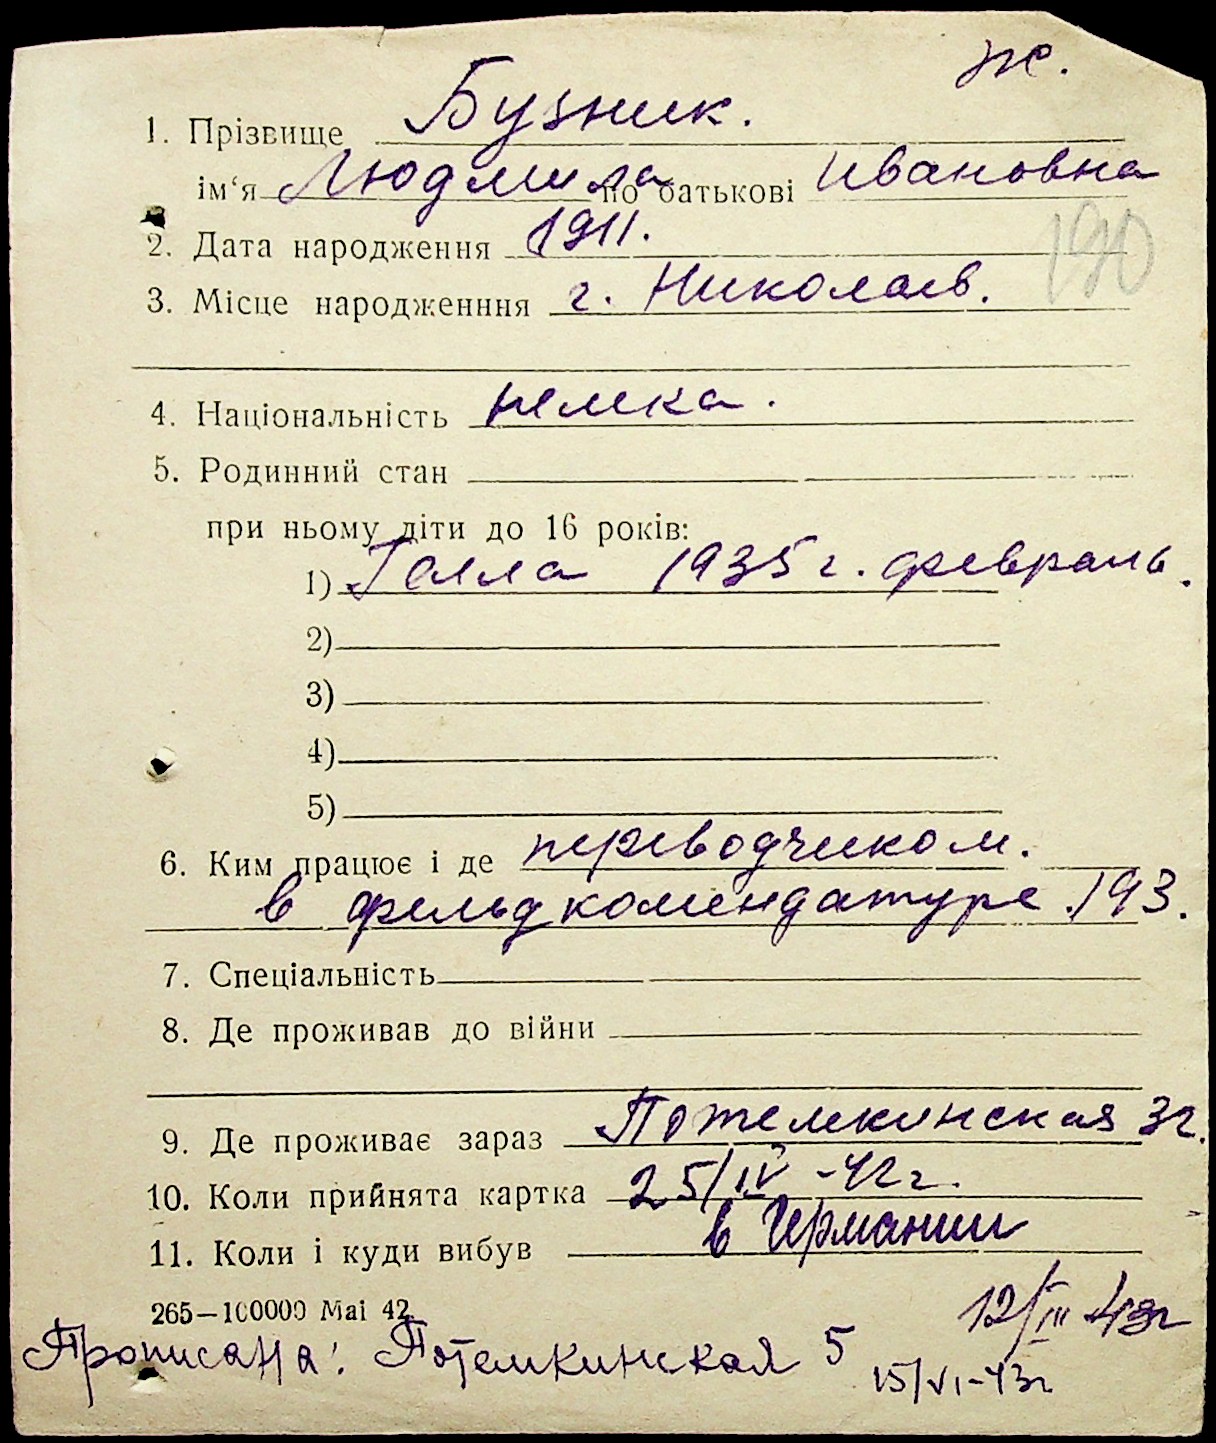 ж.
1. Прізвище Бузник.
ім‘я Людмила по батькові Ивановна
2. Дата народження 1911.
190
3. Місце народженння г. Николаев.
4. Національність немка.
5. Родинний стан
при ньому діти до 16 років:
1) Галла 1935 г. февраль.
2)
3)
4)
5)
6. Ким працює і де переводчиком.
в фельдкомендатуре 193.
7. Спеціальність
8. Де проживав до війни
9. Де проживає зараз Потемкинская 32.
10. Коли прийнята картка 25/IV -42 г.
11. Коли і куди вибув в Германии
265—100000 Маі 42
12/III 43г
Прописана: Потемкинская 5
15/VI-43г